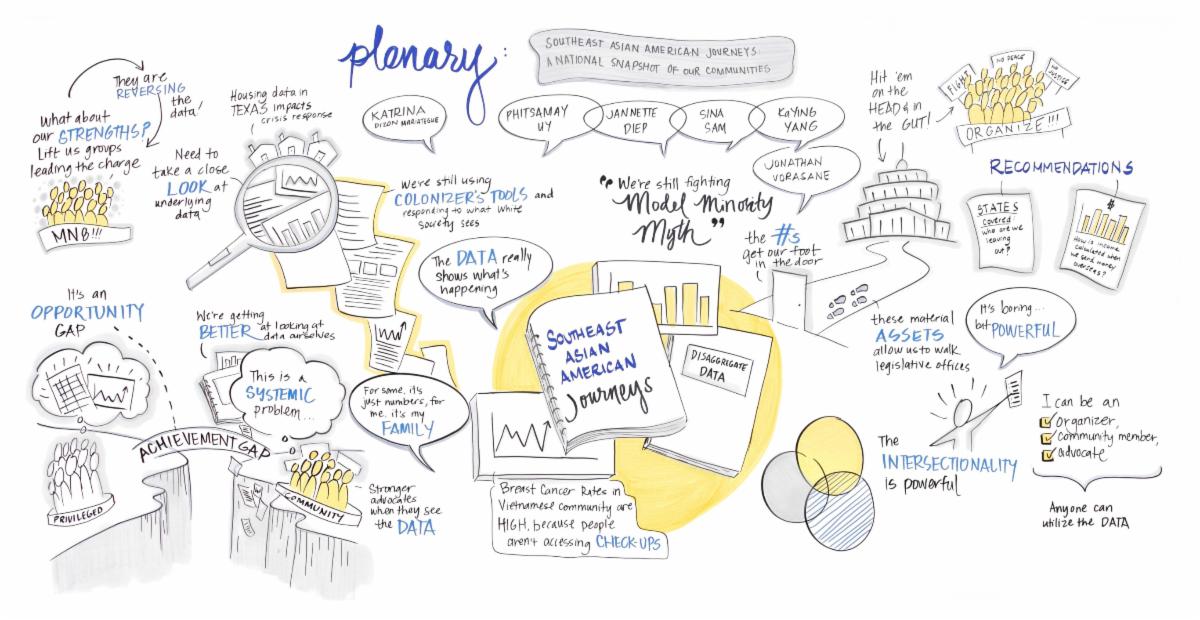 plenary:
SOUTHEAST ASIAN AMERICAN JOURNEYS:
A NATIONAL SNAPSHOT OF OUR COMMUNITIES
KATRINA
DIZON MARIATEGUE
PHITSAMAY
UY
JANNETTE
DIEP
SINA
SAM
KaYING
YANG
JONATHAN
VORASANE
They are
REVERSING
the
data!
What about
our STRENGTHS?
Lift us groups
leading the charge
MN8!!!
Housing data in
TEXAS impacts
crisis response
Need to
take a close
LOOK at
underlying
data
We're still using
COLONIZER'S TOOLS and
responding to what white
society sees
The DATA really
shows what's
happening
"We're still fighting
Model Minority
Myth"
the #s
get our foot
in the door
Hit 'em
on the
HEAD & in
the GUT!
FIGHT
NO PEACE
NO
JUSTICE
ORGANIZE!!!
RECOMMENDATIONS
STATES
covered
who are we
leaving
out?
#
How is income
calculated when
we send money
overseas?
these material
ASSETS
allow us to walk
legislative offices
It's boring...
but POWERFUL
It's an
OPPORTUNITY
GAP
We're getting
BETTER at looking at
data ourselves
This is a
SYSTEMIC
problem...
For some, it's
just numbers, for
me, it's my
FAMILY
ACHIEVEMENT GAP
PRIVILEGED
COMMUNITY
Stronger
advocates
when they see
the DATA
SOUTHEAST
ASIAN
AMERICAN
Journeys
DISAGGREGATE
DATA
Breast Cancer Rates in
Vietnamese community are
HIGH, because people
aren't accessing CHECK-UPS
The
INTERSECTIONALITY
is powerful
I can be an
organizer,
community member,
advocate
Anyone can
utilize the DATA